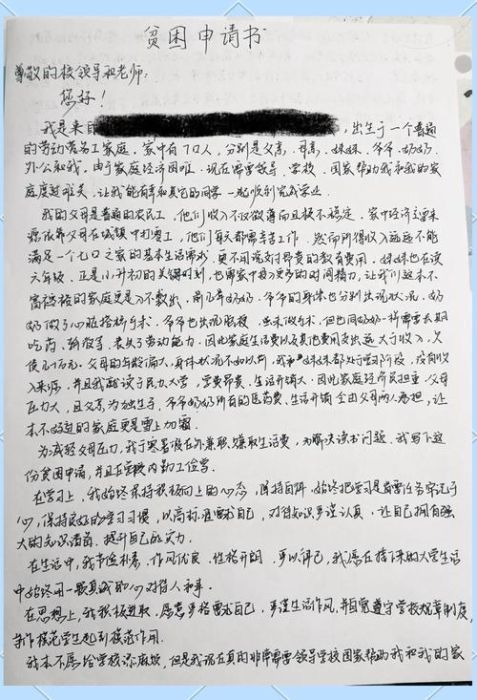 贫困申请书
尊敬的校领导和老师:
您好!
我是来自，出生于一个普通
的劳动农民工家庭。家中有7口人，分别是父亲、母亲、妹妹、爷爷、奶奶、
外公和我。由于家庭经济困难，现在需领导、学校、国家帮助我和我的家
庭度过难关，让我能有幸和其它的同学一起顺利完成学业。
我的父母是普通的农民工，他们收入不仅微薄而且极不稳定。家中经济主要来
源依靠父母在城镇中打零工，他们每天都很辛苦工作，然而所得收入远远不能
满足一个七口之家的基本生活需求，更不用说支付昂贵的教育费用。妹妹也在读
六年级，正是小升初的关键时刻，也需家中投入更多的时间精力，让我们这本不
富裕的家庭更是入不敷出。前几年奶奶、爷爷的身体也分别出现状况，奶
奶做了心脏搭桥手术，爷爷也出现脑梗，虽未做手术，但也同奶奶一样需要长期
吃药、输液等，丧失了劳动能力。因此家庭生活费以及其他费用支出远大于收入，欠
债几十万元。父母的年龄偏大，身体状况不如以前，我和妹妹都处于学习阶段，没有收入
来源，并且我面读于民办大学，学费昂贵、生活开销大，因此家庭经济负担重，父母
压力大，且父亲为独生子，爷爷奶奶所有的医药费、生活开销全由父母两人承担，让
本不好过的家庭更是雪上加霜。
为减轻父母压力，我于寒暑假在外兼职，赚取生活费，为解决读书问题，我写下这
份贫困申请，并且在学校内勤工俭学。
在学习上，我始终保持积极向上的心态，保持自律，始终把学习是首要任务牢记于
心，保持良好的学习习惯，以高标准要求自己，对待知识严谨认真，让自己拥有强
大的知识储备，提升自己的实力。
在生活中，我节俭朴素，作风优良，性格开朗，严以律己，我愿在接下来的大学生活
中始终用一颗真诚的心对待人和事。
在思想上，我积极进取，愿意严格要求自己，严谨生活作风，并自觉遵守学校规章制度，
争作模范学生起到模范作用。
我本不愿给学校添麻烦，但是我现在真的非常需要领导学校国家帮助我和我的家